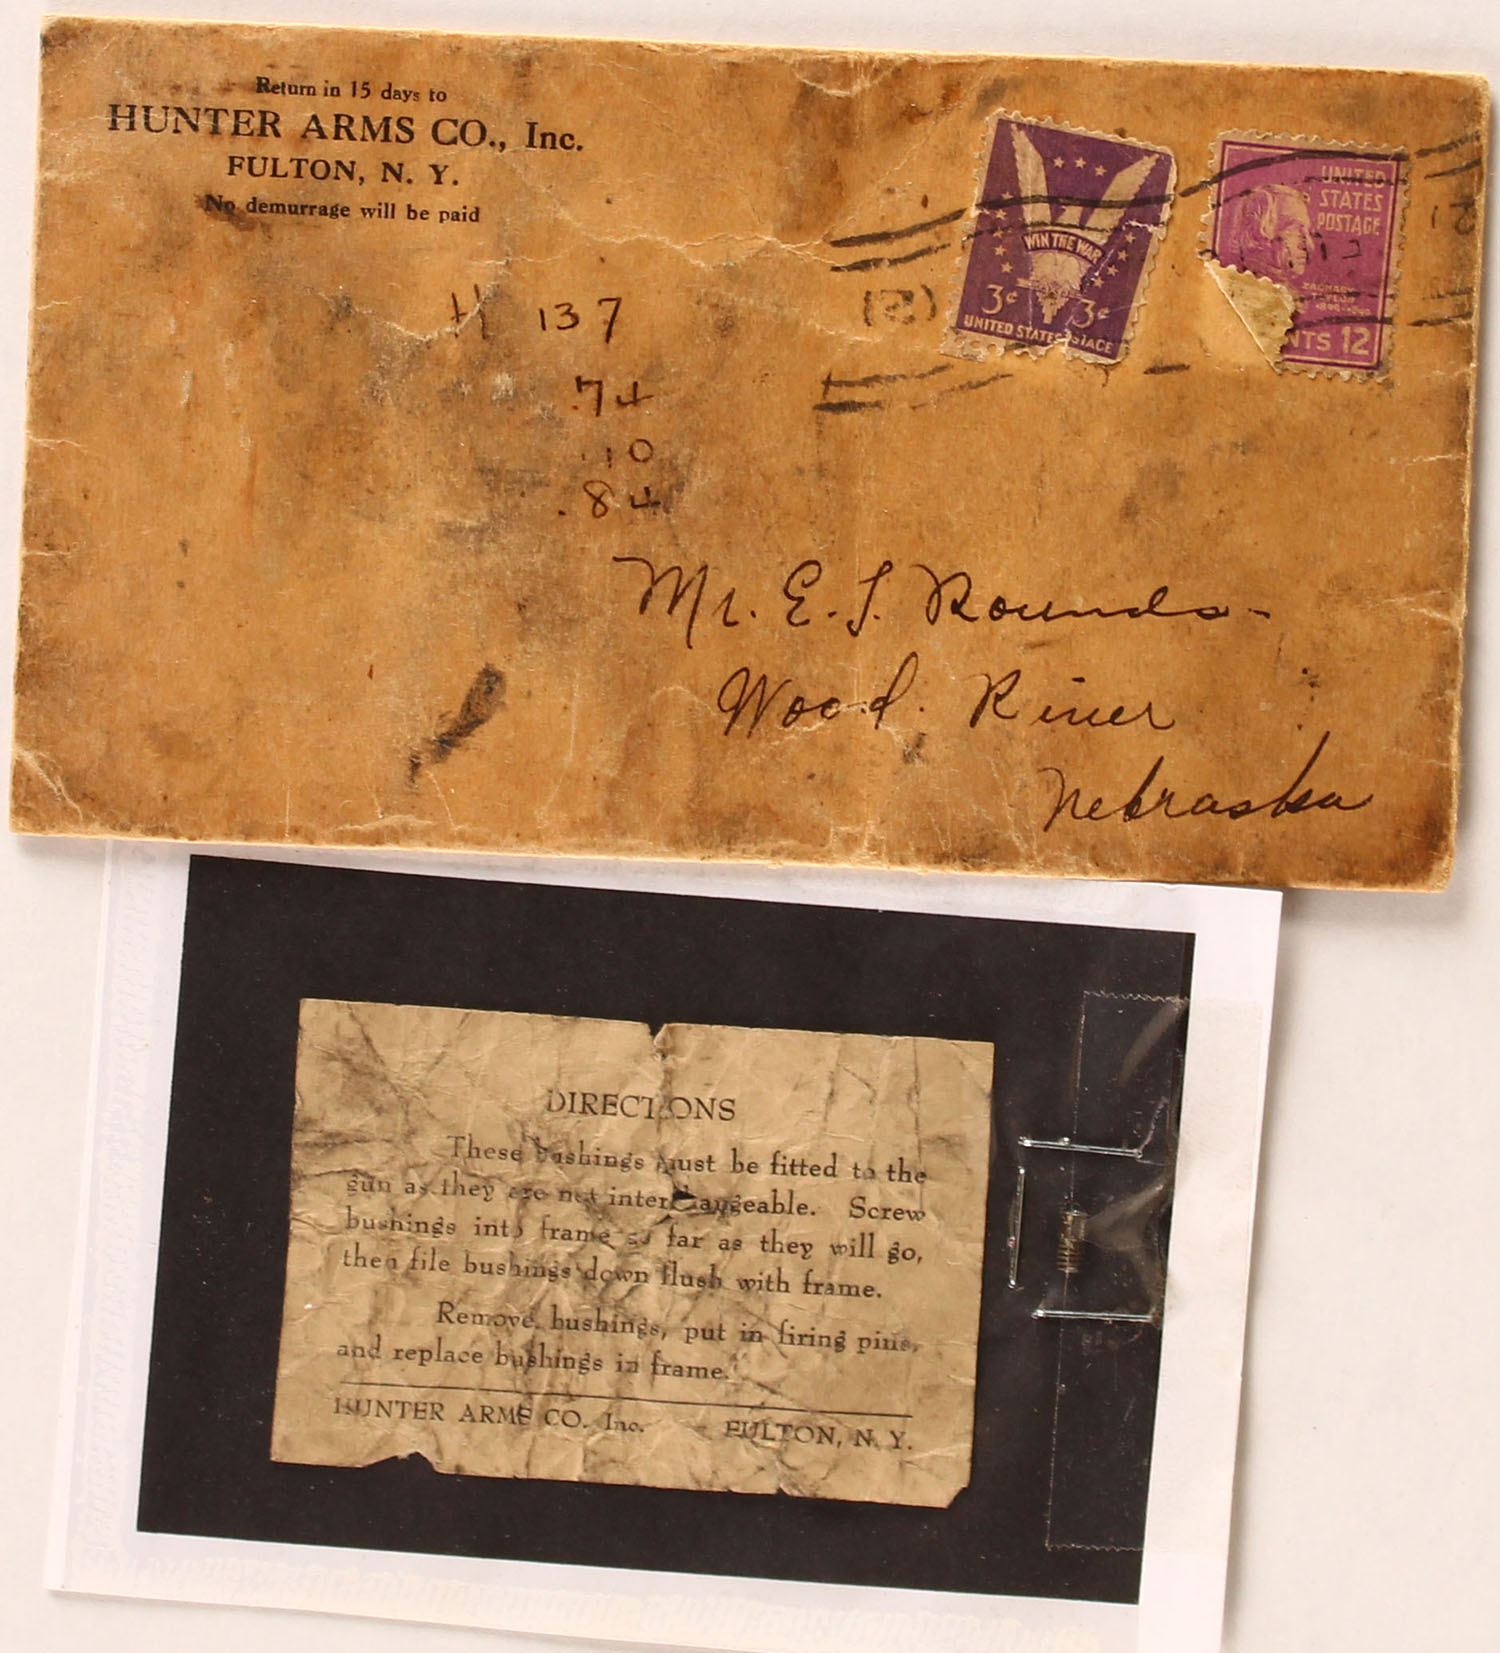 Return in 15 days to
HUNTER ARMS CO., Inc.
FULTON, N. Y.
No demurrage will be paid
WIN THE WAR
3¢ 3¢
UNITED STATES POSTAGE
UNITED
STATES
POSTAGE
ZACHARY
TAYLOR
NTS 12
H 137
.74
.10
.84
Mr. E. J. Rounds-
Wood River
Nebraska
DIRECTIONS
These bushings must be fitted to the
gun as they are not interchangeable. Screw
bushings into frame as far as they will go,
then file bushings down flush with frame.
Remove bushings, put in firing pins,
and replace bushings in frame.
HUNTER ARMS CO. Inc. FULTON, N. Y.